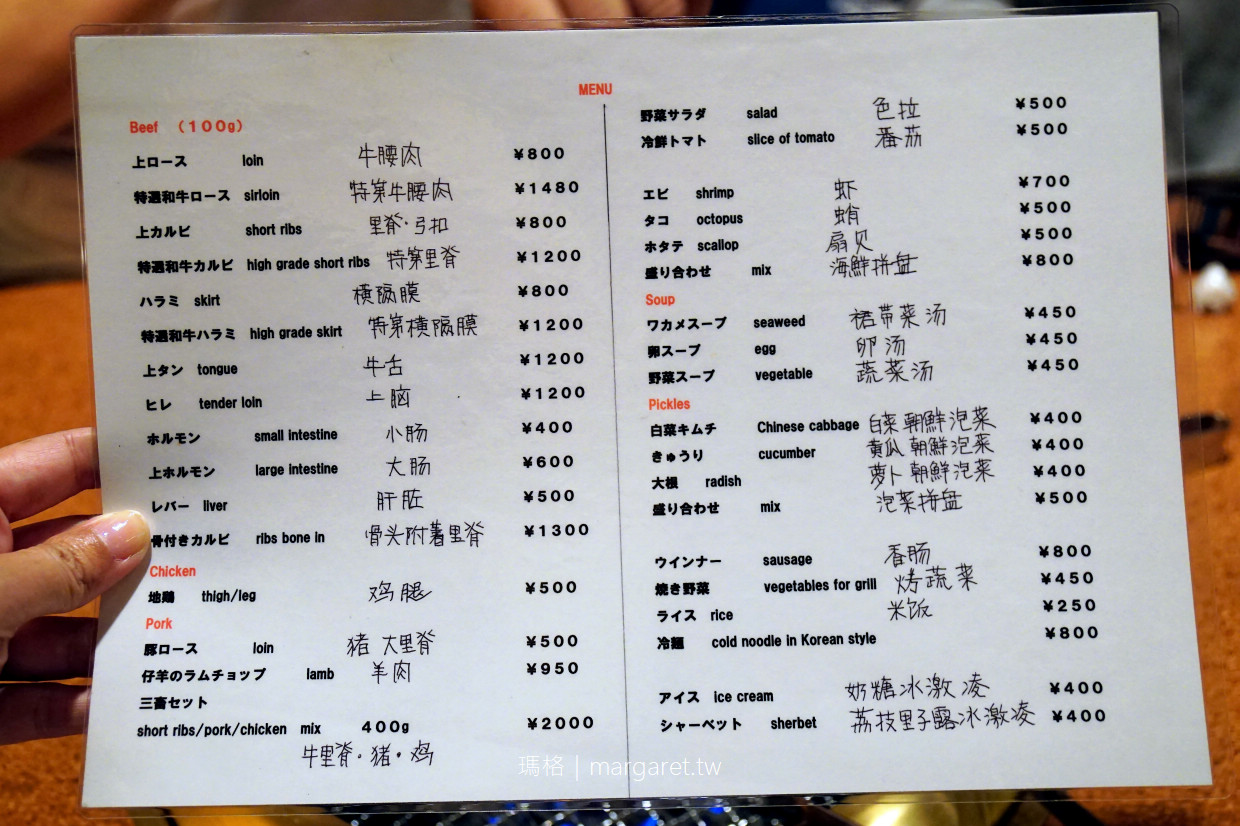 MENU
Beef （100g）
上ロース loin 牛腰肉 ¥800
特選和牛ロース sirloin 特第牛腰肉 ¥1480
上カルビ short ribs 里脊·弓扣 ¥800
特選和牛カルビ high grade short ribs 特第里脊 ¥1200
ハラミ skirt 横隔膜 ¥800
特選和牛ハラミ high grade skirt 特第横隔膜 ¥1200
上タン tongue 牛舌 ¥1200
ヒレ tender loin 上脑 ¥1200
ホルモン small intestine 小肠 ¥400
上ホルモン large intestine 大肠 ¥600
レバー liver 肝脏 ¥500
骨付きカルビ ribs bone in 骨头附着里脊 ¥1300
Chicken
地鶏 thigh/leg 鸡腿 ¥500
Pork
豚ロース loin 猪 大里脊 ¥500
仔羊のラムチョップ lamb 羊肉 ¥950
三畜セット
short ribs/pork/chicken mix 400g ¥2000
牛里脊·猪·鸡
野菜サラダ salad 色拉 ¥500
冷鮮トマト slice of tomato 番茄 ¥500
エビ shrimp 虾 ¥700
タコ octopus 蛸 ¥500
ホタテ scallop 扇贝 ¥500
盛り合わせ mix 海鮮拼盘 ¥800
Soup
ワカメスープ seaweed 裙带菜汤 ¥450
卵スープ egg 卵汤 ¥450
野菜スープ vegetable 蔬菜汤 ¥450
Pickles
白菜キムチ Chinese cabbage 白菜朝鮮泡菜 ¥400
きゅうり cucumber 黄瓜朝鮮泡菜 ¥400
大根 radish 萝卜朝鮮泡菜 ¥400
盛り合わせ mix 泡菜拼盘 ¥500
ウインナー sausage 香肠 ¥800
焼き野菜 vegetables for grill 烤蔬菜 ¥450
ライス rice 米饭 ¥250
冷麺 cold noodle in Korean style ¥800
アイス ice cream 奶糖冰激凌 ¥400
シャーベット sherbet 荔枝里子露冰激凌 ¥400
瑪格｜margaret.tw